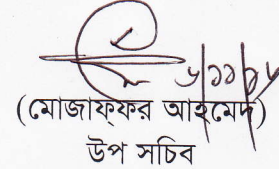 (মোজাফ্ফর আহমেদ)
উপ সচিব